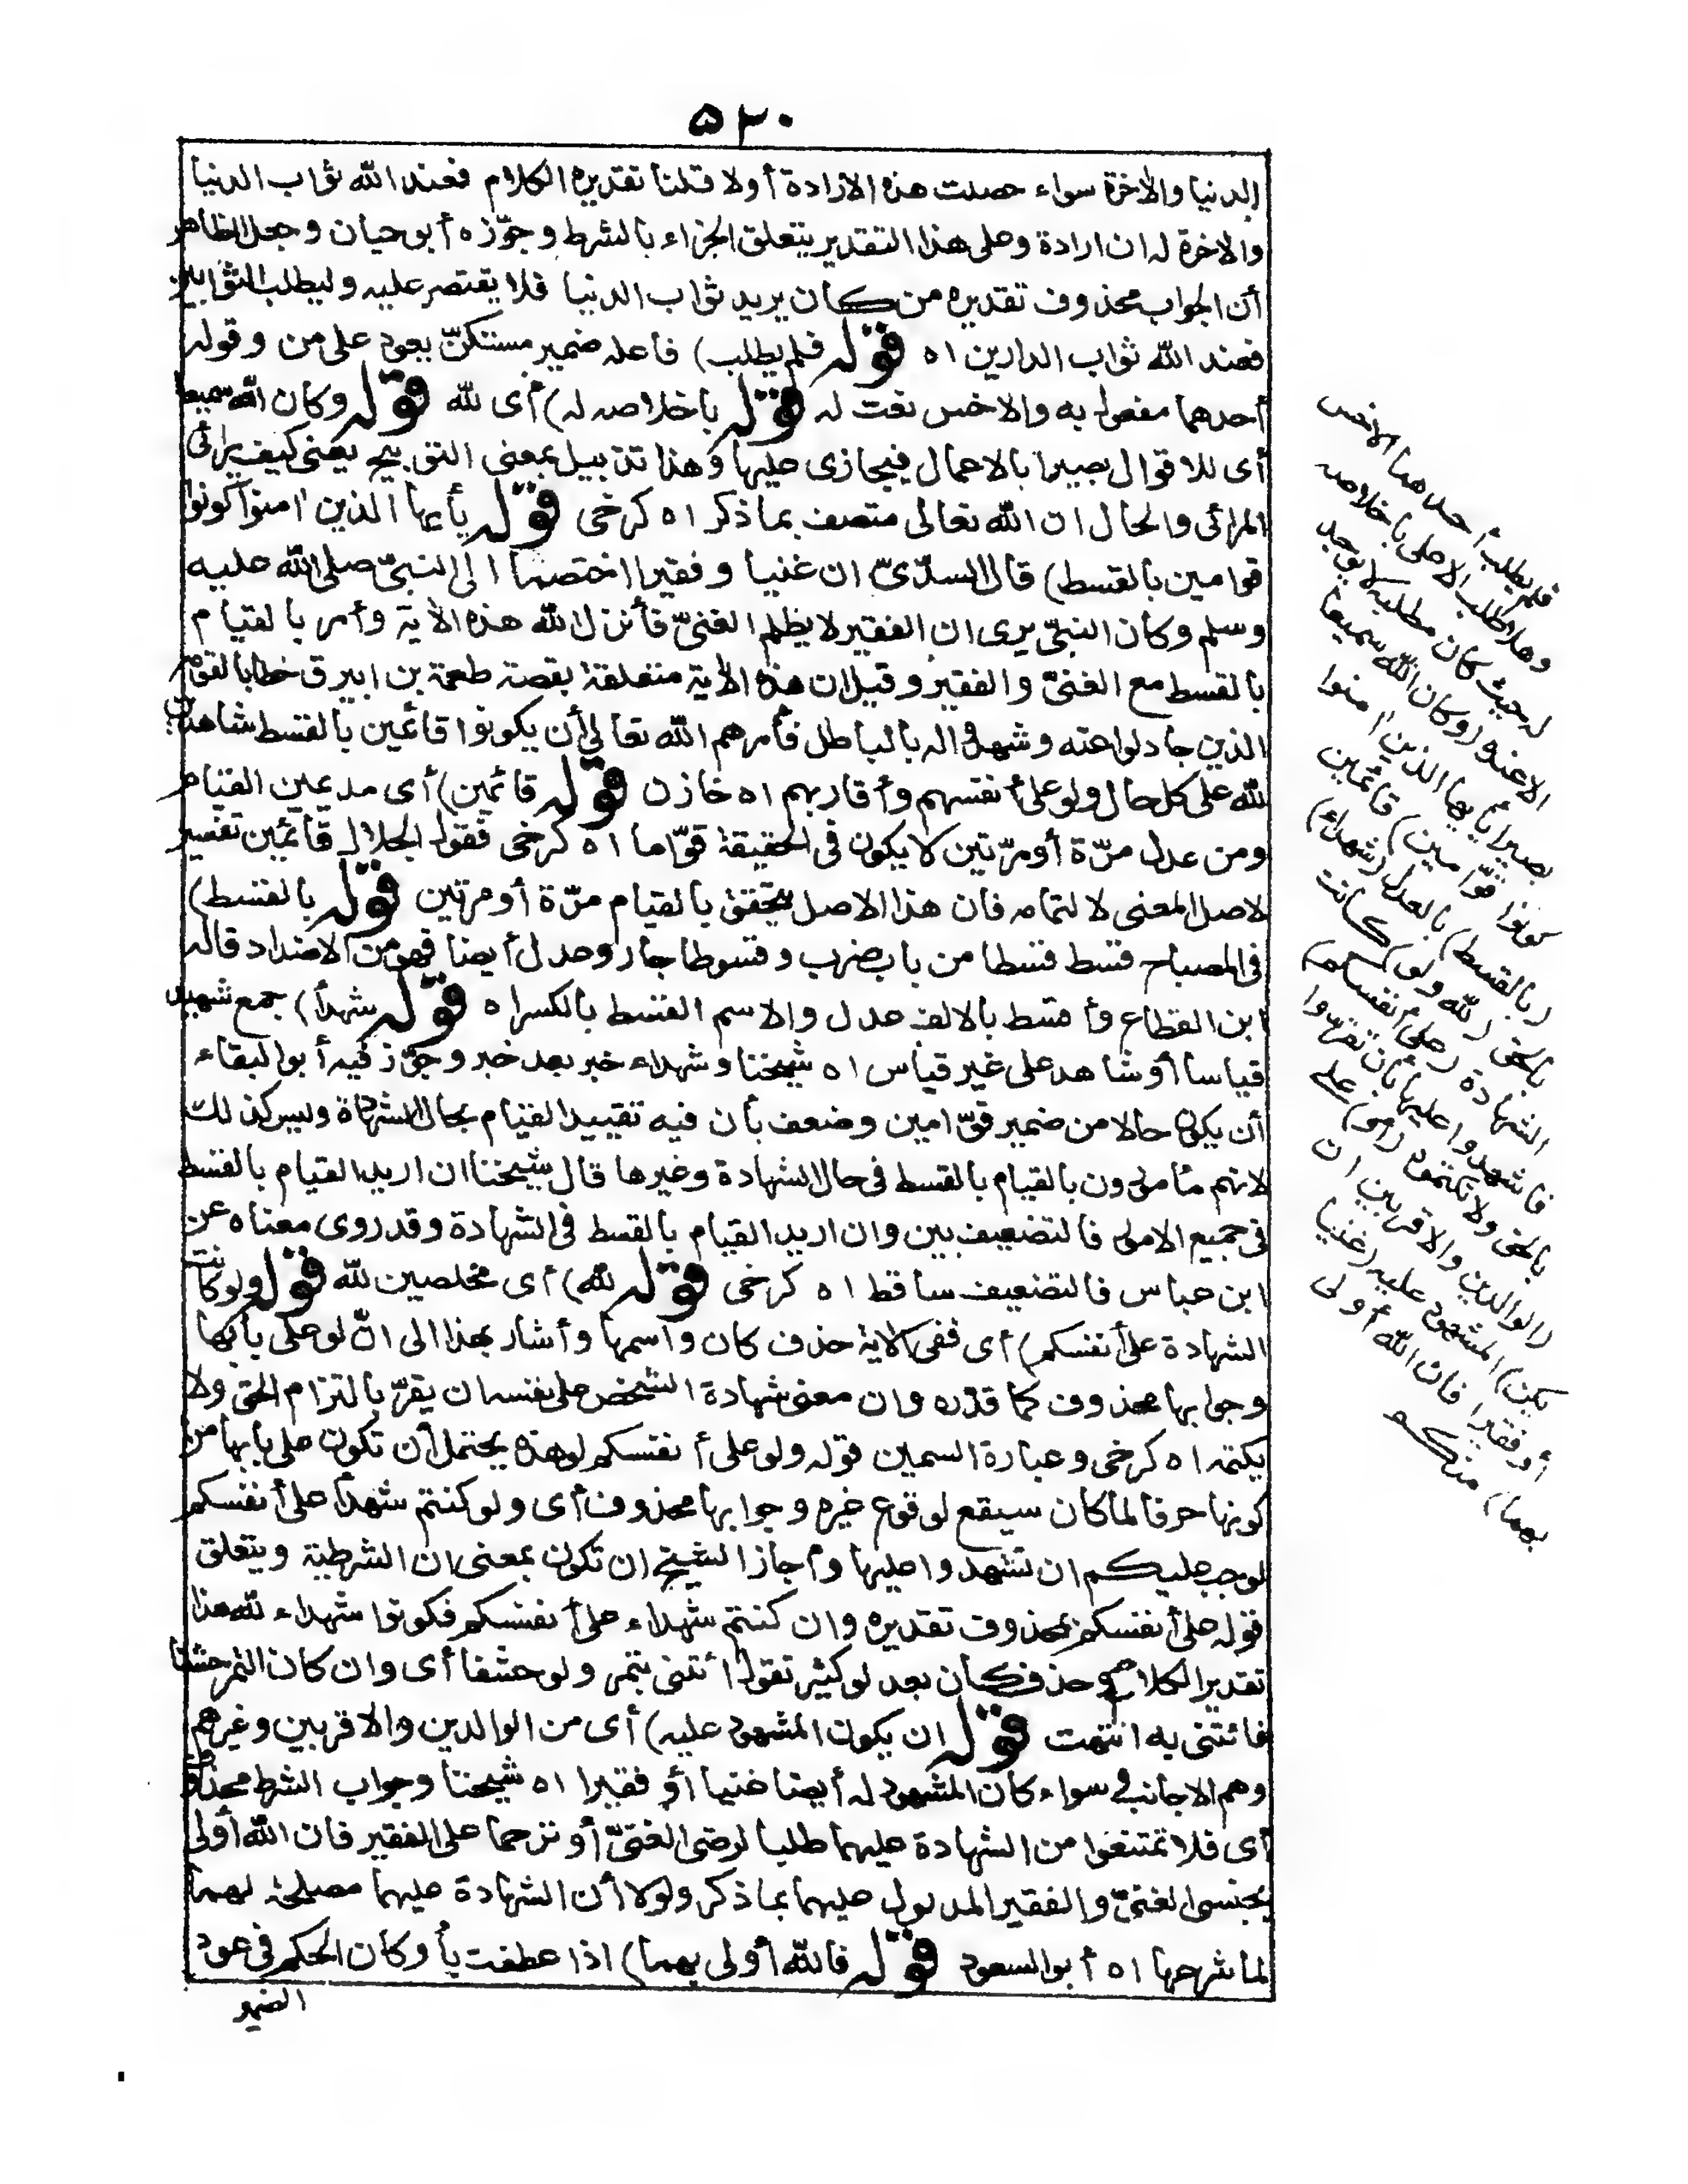 ٥٣٠
الدنيا والاخرة سواء حصلت هذه الارادة أولا قلنا تقديره الكلام فعند الله ثواب الدنيا
والاخرة له ان ارادة وعلى هذا التقدير يتعلق الجزاء بالشرط وجوّزه أبوحيان وجعل الظاهر
أن الجواب محذوف تقديره من كان يريد ثواب الدنيا فلا يقتصر عليه وليطلب الثوابين
فعند الله ثواب الدارين اه قوله فلم يطلب) فاعله ضمير مستتكنّ يعود على من وقوله
أحدهما مفعول به والاخس نعت له قوله باخلاصه له) أى لله قوله وكان الله سميعا
أى للاقوال بصيرا بالاعمال فيجازى عليها وهذا تذييل بمعنى التوبيخ يعنى كيف يرائى
المرائى والحال ان الله تعالى متصف بما ذكر اه كرخى قوله يأيها الذين امنوا كونوا
قوامين بالقسط) قال السدّىّ ان غنيا وفقيرا اختصما الى النبىّ صلى الله عليه
وسلم وكان النبىّ يرى ان الفقير لا يظلم الغنىّ فأنزل الله هذه الاية وأمر بالقيام
بالقسط مع الغنىّ والفقير وقيل ان هذه الاية متعلقة بقصة طعمة بن ابيرق خطابا لقومه
الذين جادلوا عنه وشهدوا له بالباطل فأمرهم الله تعالى أن يكونوا قائمين بالقسط شاهدين
لله على كل حال ولو على أنفسهم وأقاربهم اه خازن قوله قائمين) أى مديمين القيام
ومن عدل مرّة أومرّتين لا يكون فى الحقيقة قوّاما اه كرخى فقول الجلال قائمين تفسير
لاصل المعنى لا لتمامه فان هذا الاصل يتحقق بالقيام مرّة أو مرتين قوله بالقسط)
فى المصباح قسط قسطا من باب ضرب وقسوطا جار وعدل أيضا فهو من الاضداد قاله
ابن القطاع وأقسط بالالف عدل والاسم القسط بالكسر اه قوله شهدأ) جمع شهيد
قياسا أوشاهد على غير قياس اه شيخنا وشهداء خبر بعد خبر وجوّز فيه أبوالبقاء
أن يكون حالا من ضمير قوّامين وضعف بأن فيه تقييد القيام بحال الشهادة وليس كذلك
لانهم مأمورون بالقيام بالقسط فى حال الشهادة وغيرها قال شيخنا ان اريد القيام بالقسط
فى جميع الامور فالتضعيف بين وان اريد القيام بالقسط فى الشهادة وقد روى معناه عن
ابن عباس فالتضعيف ساقط اه كرخى قوله لله) أى مخلصين لله قوله ولو كانت
الشهادة على أنفسكم) أى ففى الاية حذف كان واسمها وأشار بهذا الى انّ لو على بابها
وجوابها محذوف كما قدّره وان معنى شهادة الشخص على نفسه ان يقرّ بالتزام الحق ولا
يكتمه اه كرخى وعبارة السمين قوله ولو على أنفسكم لو هذه يحتمل أن تكون على بابها من
كونها حرفا لما كان سيقع لوقوع غيره وجوابها محذوف أى ولو كنتم شهدأ على أنفسكم
لوجب عليكم ان تشهدوا عليها وأجاز الشيخ ان تكون بمعنى ان الشرطية ويتعلق
قوله على أنفسكم بمحذوف تقديره وان كنتم شهداء على أنفسكم فكونوا شهداء لله هذا
تقدير الكلام وحذف كان بعد لو كثير تقول ائتنى بتمر ولو حشفا أى وان كان التمر حشفا
فائتنى به انتهت قوله ان يكون المشهود عليه) أى من الوالدين والاقربين وغيرهم
وهم الاجانب وسواء كان المشهود له أيضا غنيا أو فقيرا اه شيخنا وجواب الشرط محذوف
أى فلا تمتنعوا من الشهادة عليهما طلبا لرضى الغنىّ أو ترحما على الفقير فان الله أولى
بجنسى الغنىّ والفقير المدلول عليهما بما ذكر ولولا أن الشهادة عليهما مصلحة لهما
لما شرعها اه أبوالسعود قوله فالله أولى بهما) اذا عطفت بأو كان الحكم فى عود
الضمير
فلم يطلب أحدهما الاخس
وهلا طلب الاعلى باخلاصه
له حيث كان مطلبه لا يوجد
الا عنده (وكان الله سميعا
بصيرا يأيها الذين امنوا
كونوا قوّامين) قائمين
(بالقسط) بالعدل (شهداء)
بالحق (لله ولو) كانت
الشهادة (على أنفسكم)
فاشهدوا عليها بأن تقرّوا
بالحق ولا تكتموه (أو) على
(الوالدين والاقربين ان
يكن) المشهود عليه (غنيا
أو فقيرا فان الله أولى
بهما) منكم